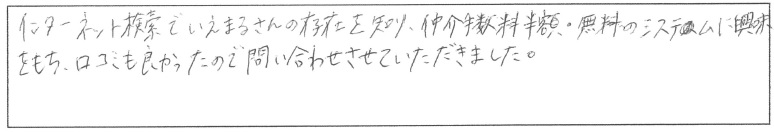 インターネット検索でいえまるさんの存在を知り、仲介手数料半額。無料のシステムに興味
をもち、口コミも良かったので問い合わせさせていただきました。